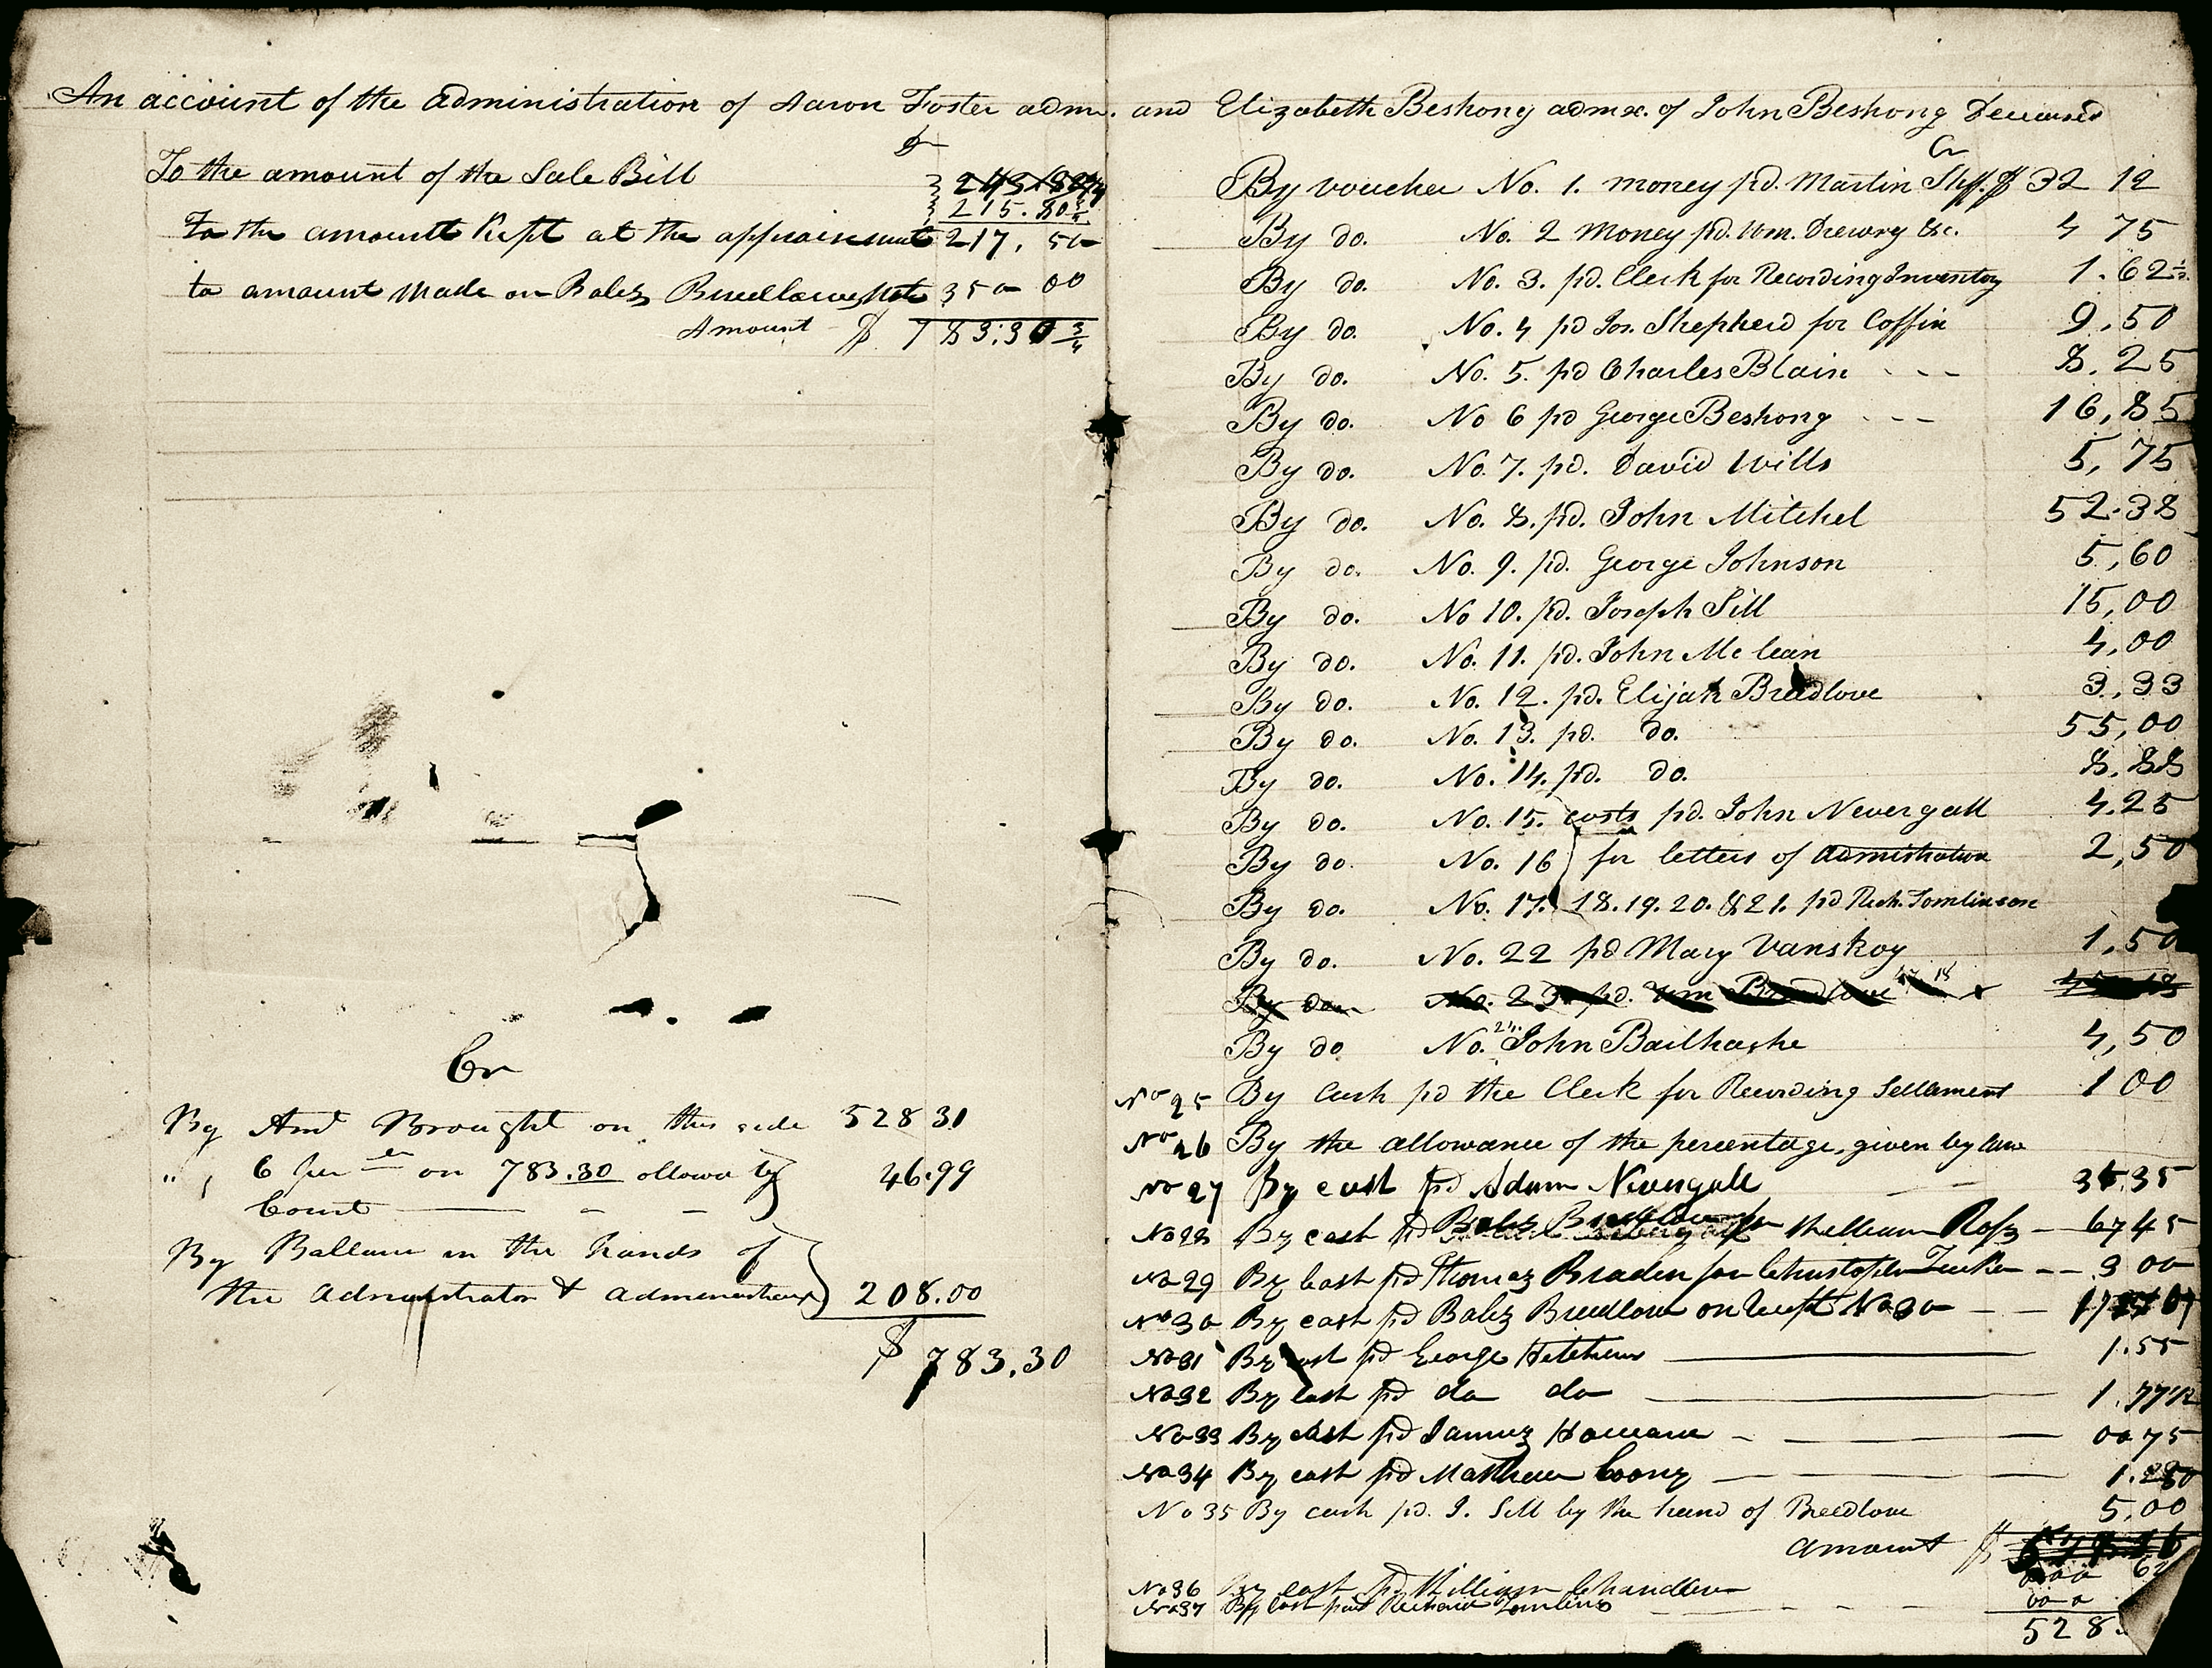 An account of the administration of Aaron Foster admr. and Elizabeth Beshong admx. of John Beshong Deceased
Dr
To the amount of the Sale Bill
215.80 3/4
To the amountt Kept at the appraisment 217, 50
to amount Made on Balez Breedlove Note 350 00
Amount $ 783.30 3/4
Cr
By Amt Brought on this side 528 31
" , 6 per on 783.30 allowd by
Court 46.99
By Ballance in the hands of
the Administrator & administratrix 208.00
$ 783.30
Cr
By voucher No. 1. money pd. Martin $ 32 12
By do. No. 2 Money pd. Wm. Drewry &c. 4 75
By do. No. 3. pd. Clerk for Recording Inventory 1.62 1/2
By do. No. 4 pd Jos. Shepherd for Coffin 9.50
By do. No. 5. pd Charles Blain - - - 8.25
By do. No 6 pd George Beshong - - - 16,85
By do. No. 7. pd. David Wills 5,75
By do. No. 8. pd. John Mitchel 52.38
By do. No. 9. pd. George Johnson 5,60
By do. No 10. pd. Joseph Sill 15,00
By do. No. 11. pd. John Mc lean 4,00
By do. No. 12. pd. Elijah Breedlove 3,33
By do. No. 13. pd. do. 55,00
By do. No. 14. pd. do. 8.88
By do. No. 15. costs pd. John Nevergall 4.25
By do. No. 16 for letters of Admistration 2,50
By do. No. 17. 18. 19. 20. & 21. pd Rich. Tomlinson
By do. No. 22 pd Mary Vanskoy 1,50
By do No. 23 pd. Wm Breedlove
By do No. 24. John Bailhashe 4,50
No 25 By Cash pd the Clerk for Recording Settlament 1 00
No 26 By the allowance of the percentage, given by law
No 27 By cash pd Adam Nevergall 35
No 28 By cash pd William Ross - 67 45
No 29 By Cash pd Thomas Braden for Christopher - - 3 00
No 30 By cash pd Balez Breedlove on No 30 - -
No 31 By cash pd George 1.55
No 32 By Cash pd do do 1.77 1/2
No 33 By cash pd 00 75
No 34 By cash pd Mathew
No 35 By cash pd. J. Sill by the hand of Breedlove 5,00
Amount $
No 36 By cash pd William Chandler
No 37 By Cash paid Richard
528.